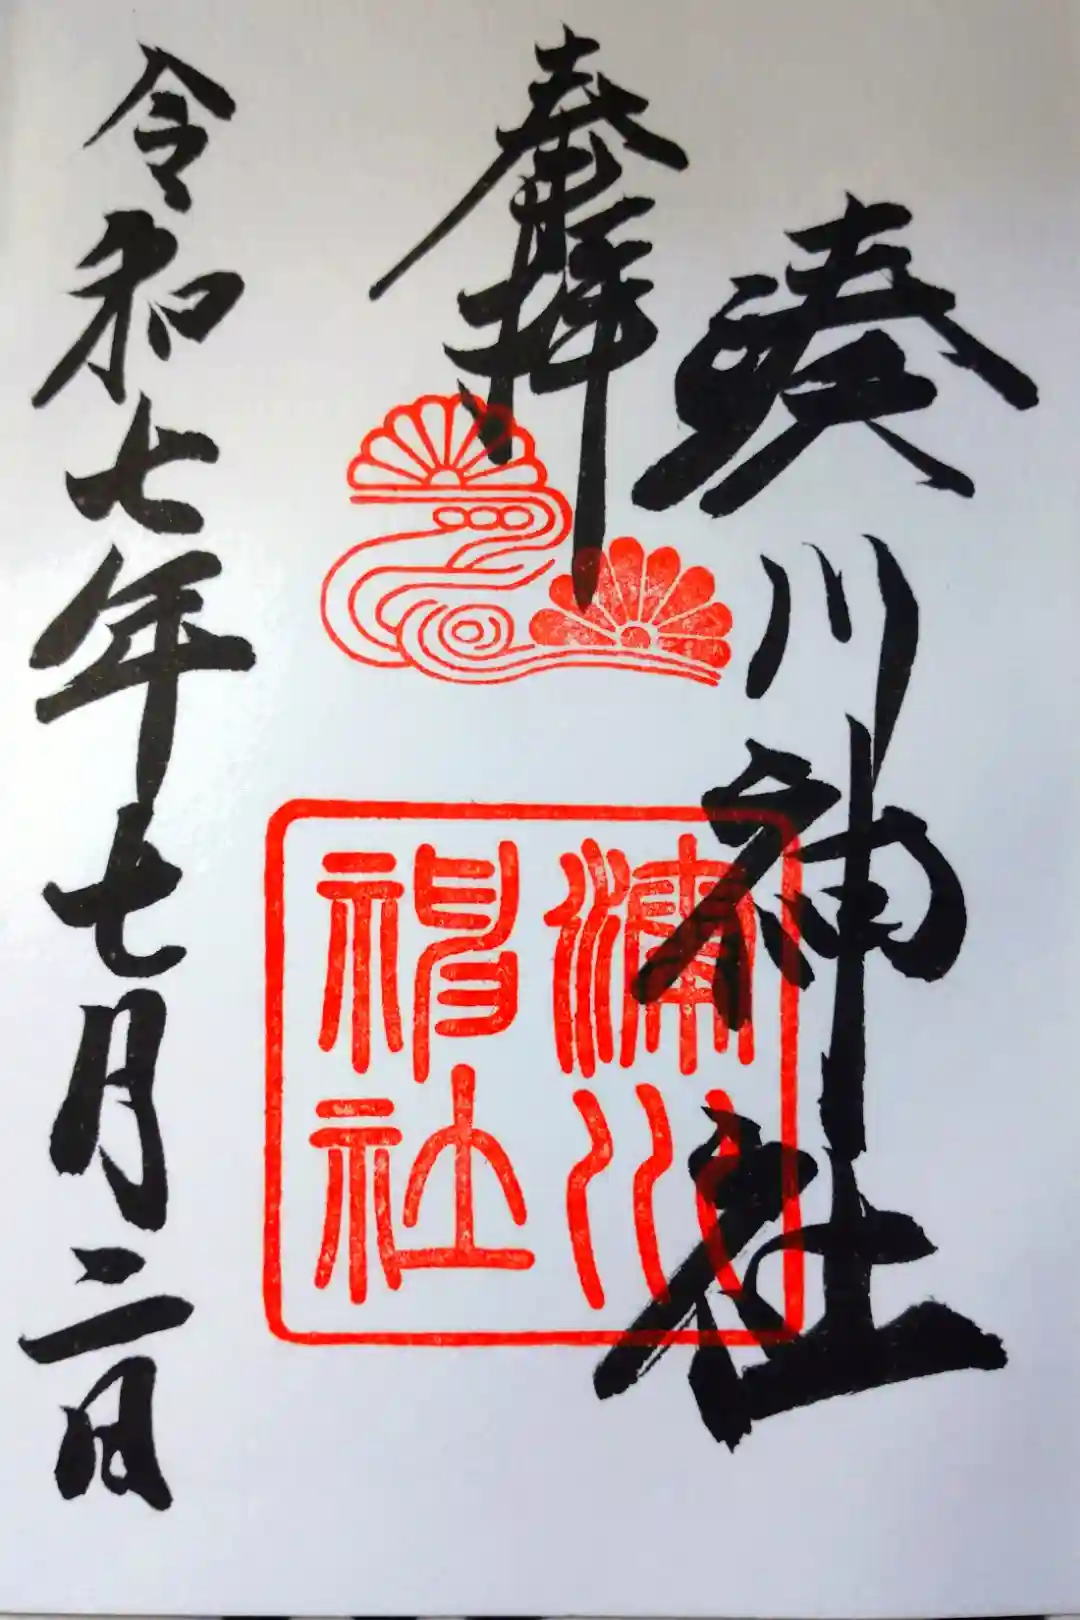 湊川神社
奉拝
令和七年七月二日
湊川
神社